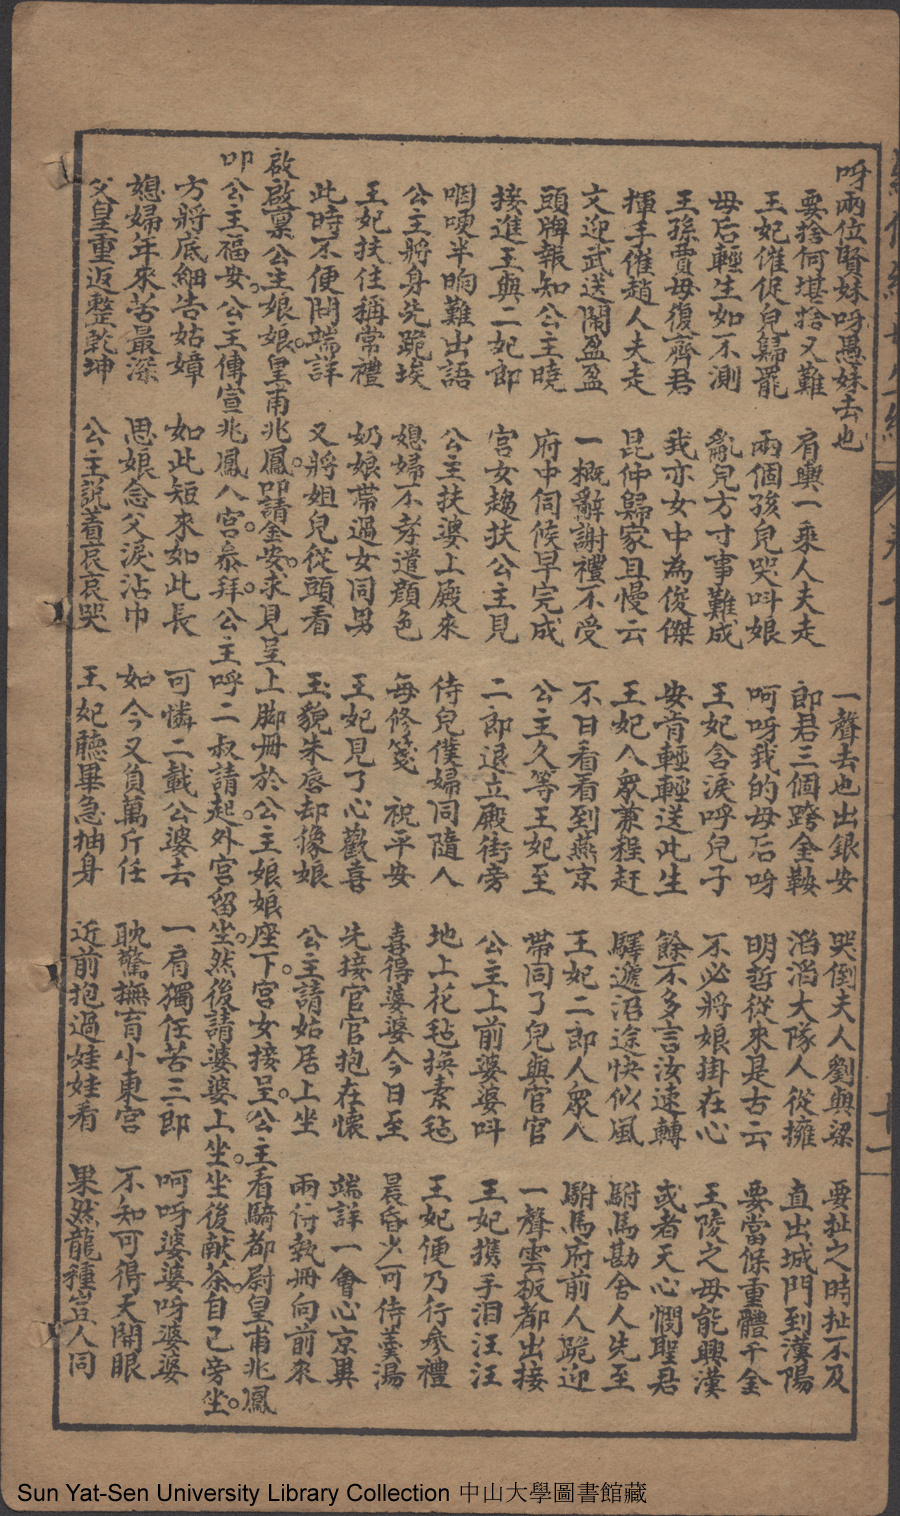 呀兩位賢妹呀愚妹去也
要捨何堪捨又難　肩輿一乘人夫走　一聲去也出銀安　哭倒夫人劉與梁　要扯之時扯不及
王妃催促兒歸罷　兩個孩兒哭呌娘　郎君三個跨金鞍　滔滔大隊人從擁　直出城門到漢陽
母后輕生如不測　亂兒方寸事難成　呵呀我的母后呀　明哲從來是古云　要當保重體千金
王孫賈母復齊君　我亦女中為俊傑　王妃含淚呼兒子　不必將娘掛在心　王陵之母能興漢
揮手催趲人夫走　昆仲歸家且慢云　安肯輕輕送此生　餘不多言汝速轉　或者天心憫聖君
文迎武送鬧盈盈　一概辭謝禮不受　王妃人衆兼程赶　驛遞沿途快似風　駙馬勘舍人先至
頭牌報知公主曉　府中伺候早完成　不日看看到燕京　王妃二郎人衆人　駙馬府前人跪迎
接進王與二妃郎　宮女趨扶公主見　公主久等王妃至　帶同了兒與官官　一聲雲板都出接
咽哽半晌難出語　公主扶婆上殿來　二郎退立殿街旁　公主上前婆婆呌　王妃携手泪汪汪
公主將身先跪埃　媳婦不孝遣顏色　侍兒僕婦同隨人　地上花毡換素毡　王妃便乃行參禮
王妃扶住稱常禮　奶娘帶過女同男　每修箋　祝平安　喜得婆婆今日至　晨昏少可侍羹湯
此時不便問端詳　又將姐兒從頭看　王妃見了心歡喜　先接官官抱在懷　端詳一會心京異
玉貌朱唇却像娘　公主請姑居上坐　兩行執冊向前來
啟啟稟公主娘娘。皇甫兆鳳。叩請金安。求見呈上脚冊於。公主娘娘座下。宮女接呈。公主看騎都尉皇甫兆鳳
叩公主福安。公主傳宣兆鳳入宮。叅拜。公主呼二叔請起。外宮留坐。然後請婆婆上坐。坐後献茶。自己旁坐。
方將底細告姑嫜　如此短來如此長　可憐二載公婆去　一肩獨任苦三郎　呵呀婆婆呀婆婆
媳婦年來苦最深　思娘念父淚沾巾　如今又負萬斤任　耽驚撫育小東宮　不知可得天開眼
父皇重返整乾坤　公主説着哀哀哭　王妃聽畢急抽身　近前抱過娃娃看　果然龍種豈人同
十一
Sun Yat-Sen University Library Collection 中山大學圖書館藏